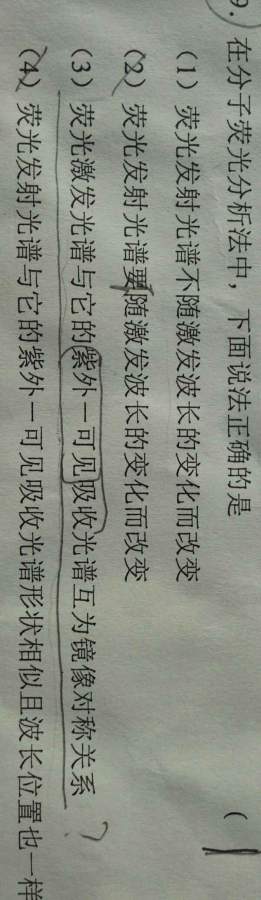 9. 在分子荧光分析法中，下面说法正确的是 (
(1) 荧光发射光谱不随激发波长的变化而改变
(2) 荧光发射光谱要随激发波长的变化而改变
(3) 荧光激发光谱与它的紫外一可见吸收光谱互为镜像对称关系 ?
(4) 荧光发射光谱与它的紫外一可见吸收光谱形状相似且波长位置也一样